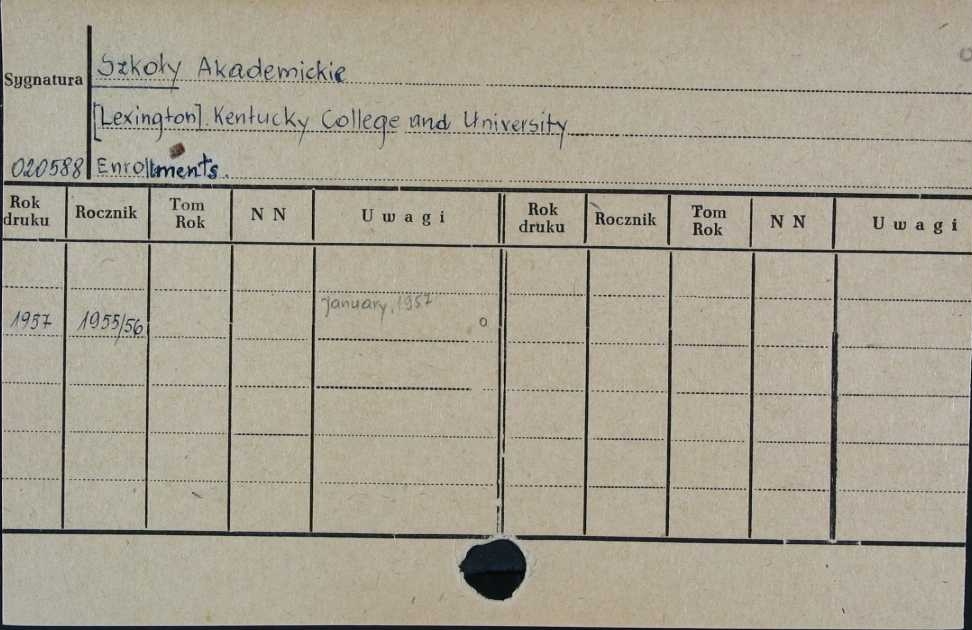 Sygnatura
Szkoły Akademickie
[Lexington]. Kentucky College and University
020588 Enrollments.
Rok druku Rocznik Tom Rok N N Uwagi Rok druku Rocznik Tom Rok N N Uwagi
january, 1957
1957 1955/56 o